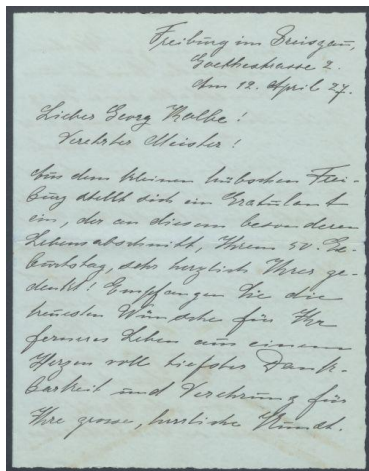 Freiburg im Breisgau,
Goethestrasse 2.
Am 12. April 27.
Lieber Georg Kolbe!
Verehrter Meister!
Aus dem kleinen hübschen Frei-
burg stellt sich ein Gratulant
ein, der an diesem besonderen
Lebensabschnitt, Ihrem 50. Ge-
burtstag, sehr herzlich Ihrer ge-
denkt! Empfangen Sie die
treuesten Wünsche für Ihr
ferneres Leben aus einem
Herzen voll tiefster Dank-
barkeit und Verehrung für
Ihre grosse, herrliche Kunst.